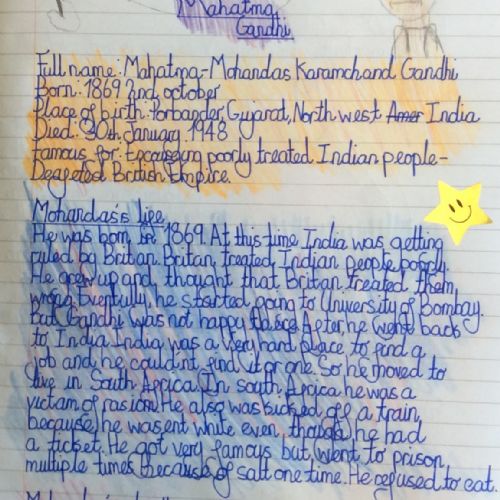 Mahatma
Gandhi
Full name: Mahatma-Mohandas Karamchand Gandhi
Born: 1869 2nd october
Place of birth: Porbander, Gujarat, North west Amer India
Died: 30th January 1948
Famous for: Encouraging poorly treated Indian people-
Degeated British Empire.
Mohandas's life
He was born in 1869. At this time India was getting
ruled by Britan. Britan treated Indian people poorly.
He grew up and thought that Britan treated them
wrong. Eventfully, he started going to University of Bombay.
But Gandhi was not happy there. After, he went back
to India. India was a very hard place to find a
job and he couldn't find it or one. So he moved to
live in South Africa. In south Africa he was a
victam of rasism. He also was kicked off a train,
because, he was ent white even, though, he had
a ticket. He got very famous but, went to prison,
multiple times. Because of salt one time. He refused to eat.